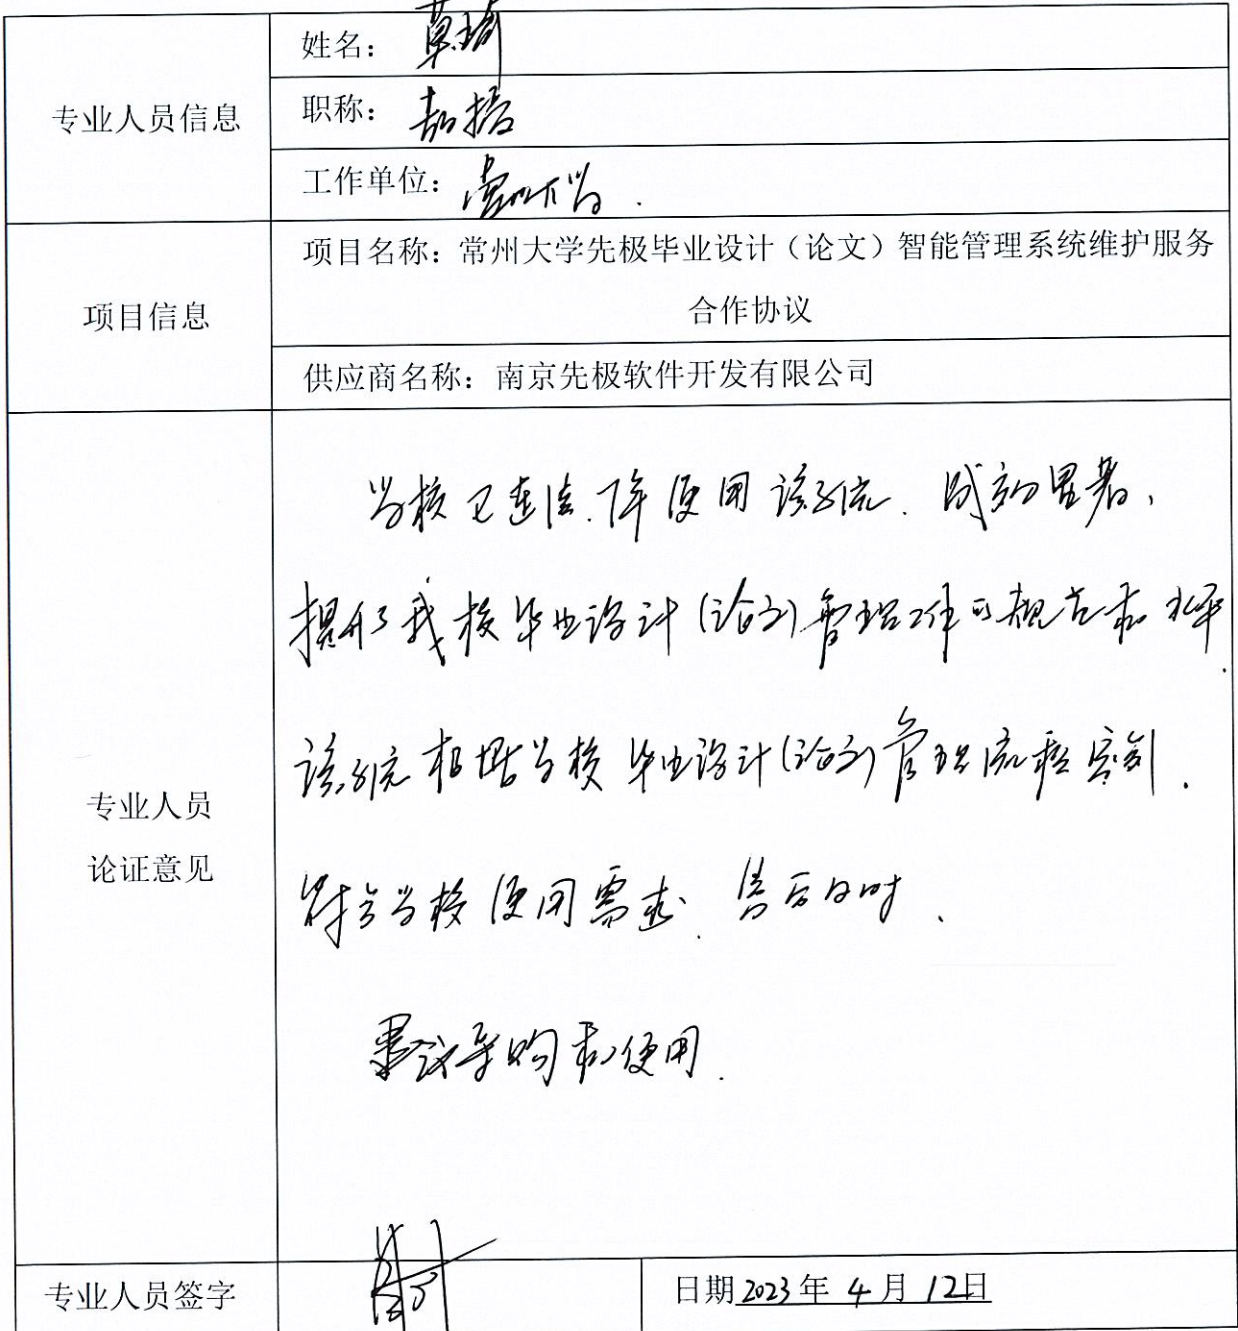 专业人员信息
姓名：
职称：教授
工作单位：常州大学.
项目信息
项目名称：常州大学先极毕业设计（论文）智能管理系统维护服务
合作协议
供应商名称：南京先极软件开发有限公司
专业人员
论证意见
学校已连续 年使用该系统. 成效显著,
提升了我校毕业设计(论文)管理工作的规范和水平.
该系统根据学校毕业设计(论文)管理流程定制.
符合学校使用需求. 售后及时.
建议采购和使用.
专业人员签字
日期2023年 4月 12日